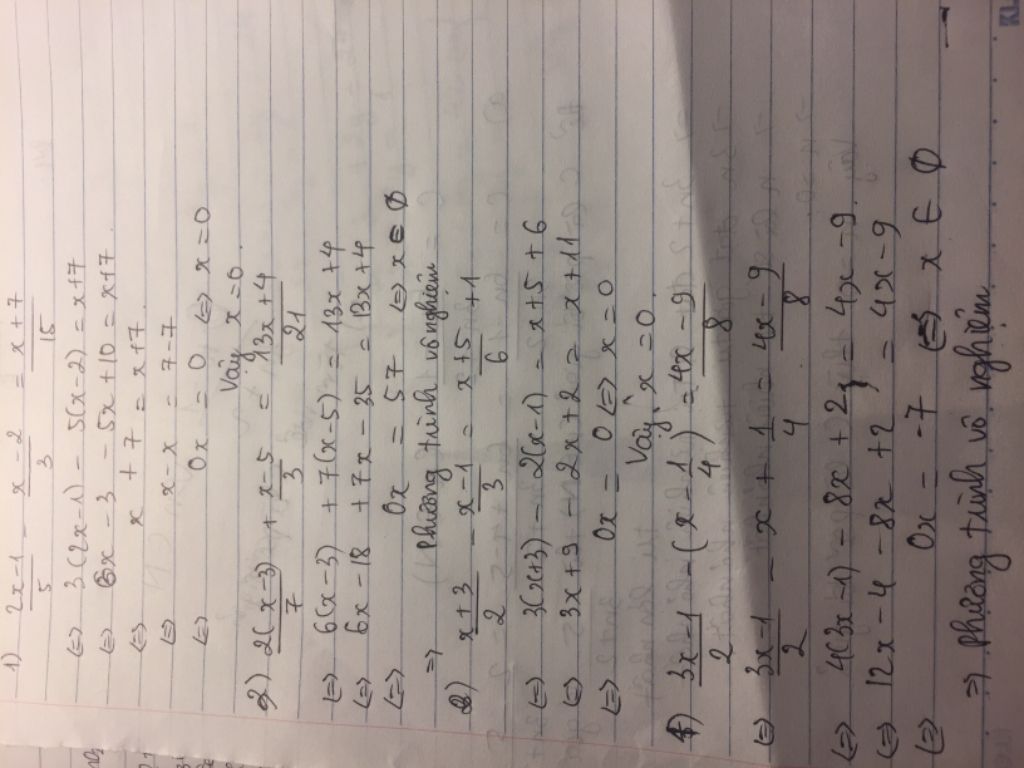 1) \frac{2x-1}{5} - \frac{x-2}{3} = \frac{x+7}{15}
(=) 3(2x-1) - 5(x-2) = x+7
(=) 6x - 3 - 5x + 10 = x+7.
(=) x + 7 = x+7.
(=) x - x = 7-7
(=) 0x = 0 (=) x = 0
Vậy x = 0.
2) \frac{2(x-3)}{7} + \frac{x-5}{3} = \frac{13x+4}{21}
(=) 6(x-3) + 7(x-5) = 13x+4
(=) 6x - 18 + 7x - 35 = 13x+4
(=) 0x = 57 (=) x ∈ ∅
=) Phương trình vô nghiệm
3) \frac{x+3}{2} - \frac{x-1}{3} = \frac{x+5}{6} + 1
(=) 3(x+3) - 2(x-1) = x+5+6
(=) 3x+9 - 2x+2 = x+11
(=) 0x = 0 (=) x = 0
Vậy x = 0.
4) \frac{3x-1}{2} - (x - \frac{1}{4}) = \frac{4x-9}{8}
(=) \frac{3x-1}{2} - x + \frac{1}{4} = \frac{4x-9}{8}
(=) 4(3x-1) - 8x + 2 = 4x-9.
(=) 12x - 4 - 8x + 2 = 4x-9
(=) 0x = -7 (=) x ∈ ∅
=) Phương trình vô nghiệm